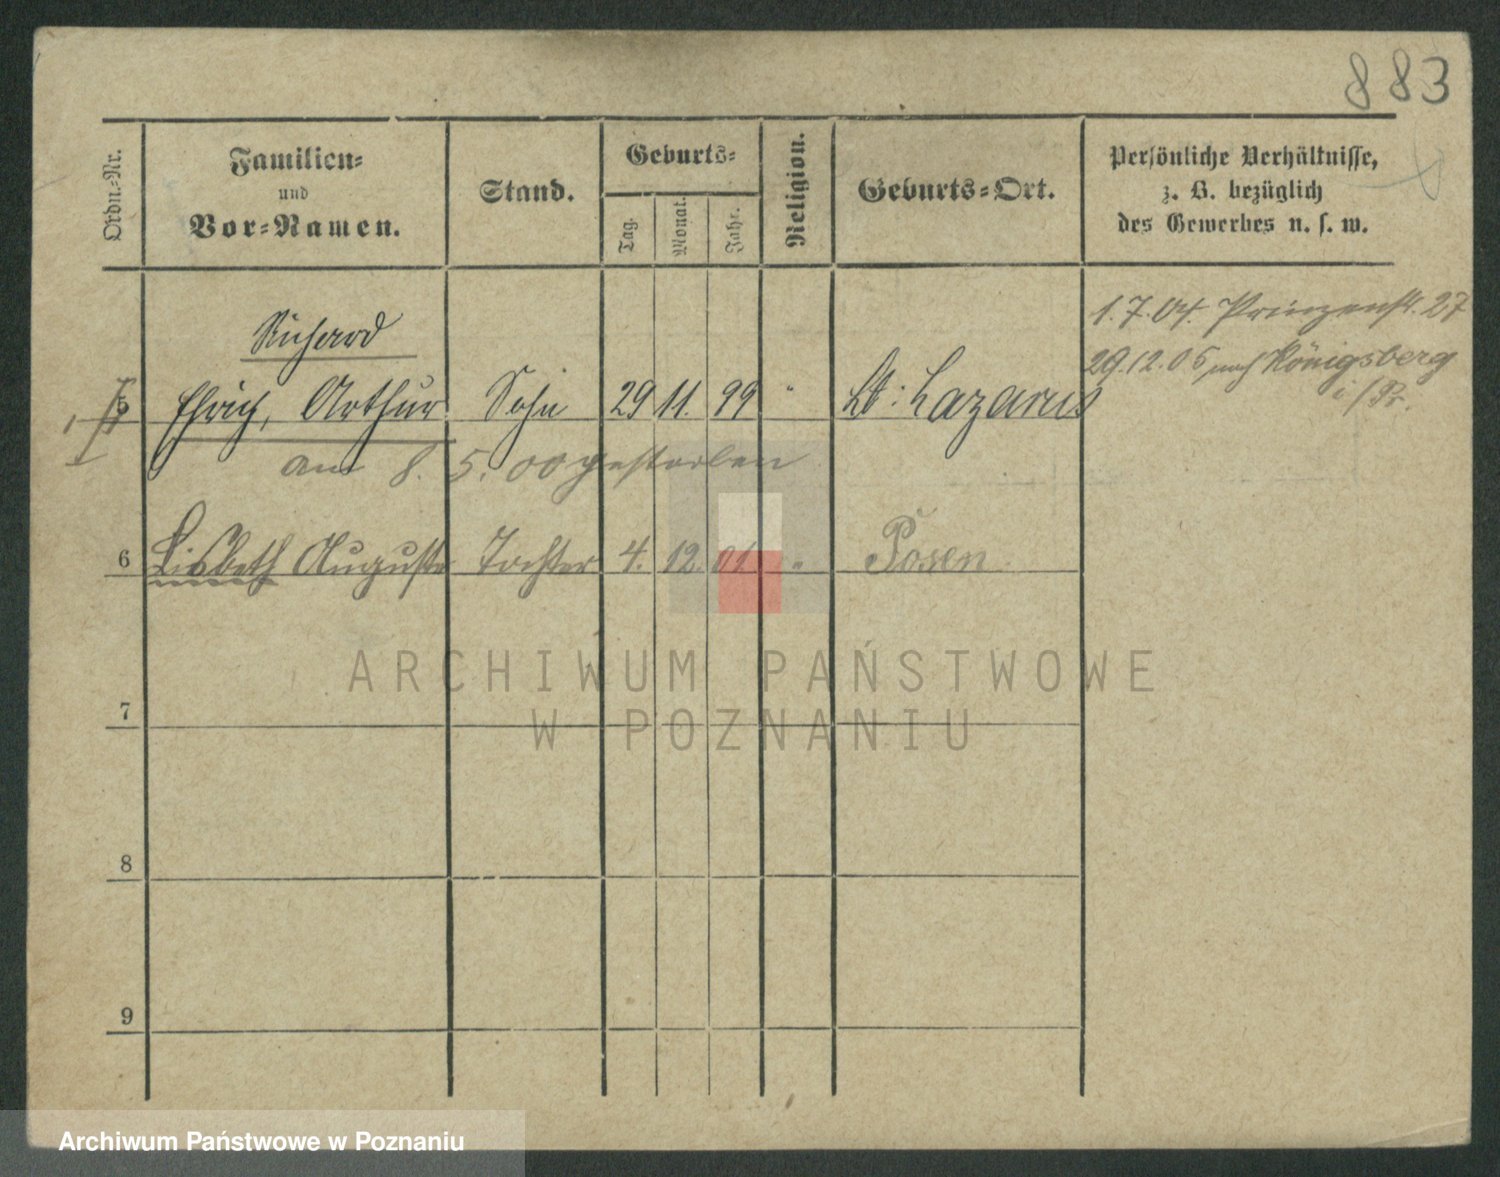 883
Ordn.-Nr.
Familien-
und
Vor-Namen.
Stand.
Geburts-
Tag.
Monat.
Jahr.
Religion.
Geburts-Ort.
Persönliche Verhältnisse,
z. B. bezüglich
des Gewerbes u. s. w.
1. 7. 04. Prinzenstr. 27
29. 12. 05 nach Königsberg
i/Pr.
Richard
5 Erich, Arthur Sohn 29 11. 99 " St: Lazarus
am 8. 5. 00 gestorben
6 Lisbeth Auguste Tochter 4. 12. 01 " Posen
7
8
9
ARCHIWUM PAŃSTWOWE
W POZNANIU
Archiwum Państwowe w Poznaniu